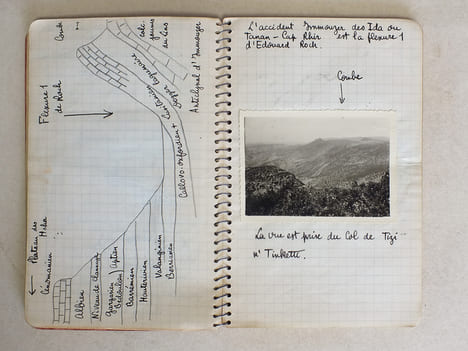 Combe
Calc.
jaunes
du Lias
Flexure 1
de Roch
Anticlinal d'Immouzer
Callovo-oxfordien +
← Plateau des
Haha
Cénomanien
Albien
Niveau de
Gargasien
Bédoulien
} Aptien
Barrémien
Hauterivien
Valanginien
Berriasien
L'accident Immouzer des Ida ou
Tanan - Cap Rhir est la flexure 1
d'Edouard Roch.
Combe
La vue est prise du Col de Tizi
n' Tinkotti.